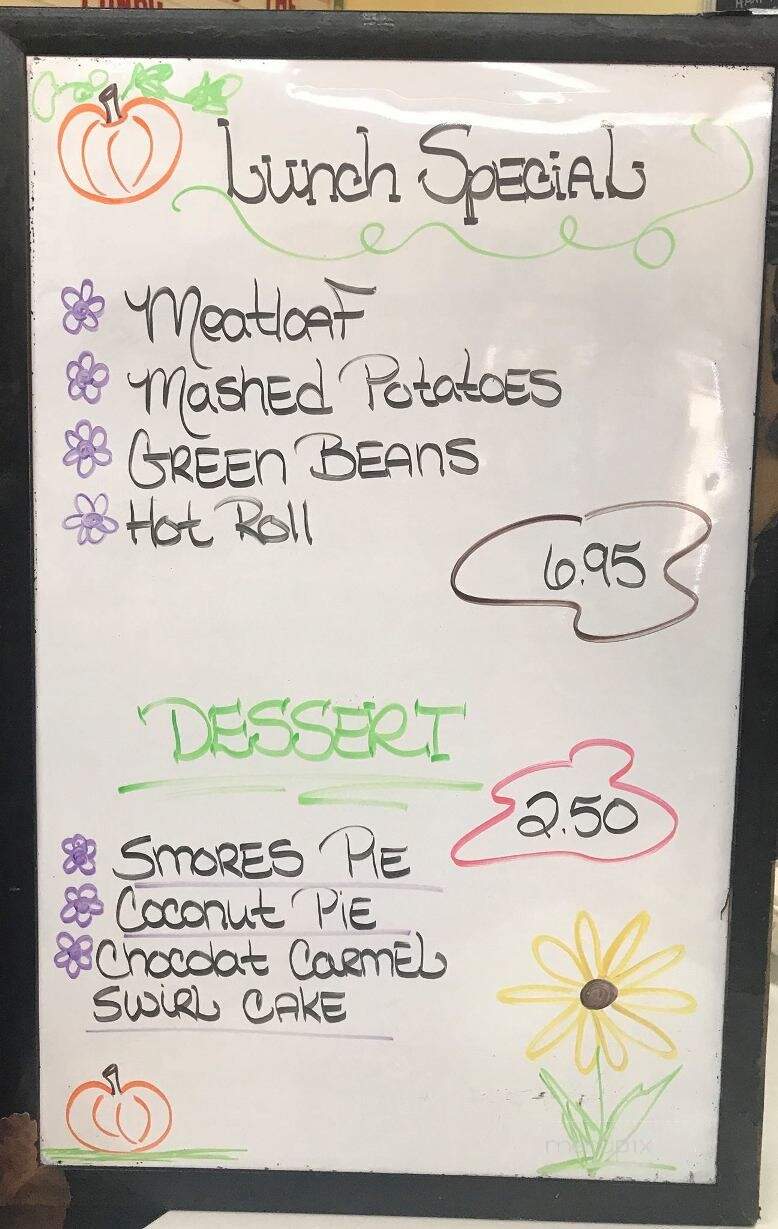 Lunch Special
Meatloaf
Mashed Potatoes
Green Beans
Hot Roll
6.95
DESSERT
2.50
Smores Pie
Coconut Pie
Chocolat Carmel
Swirl Cake
menupix